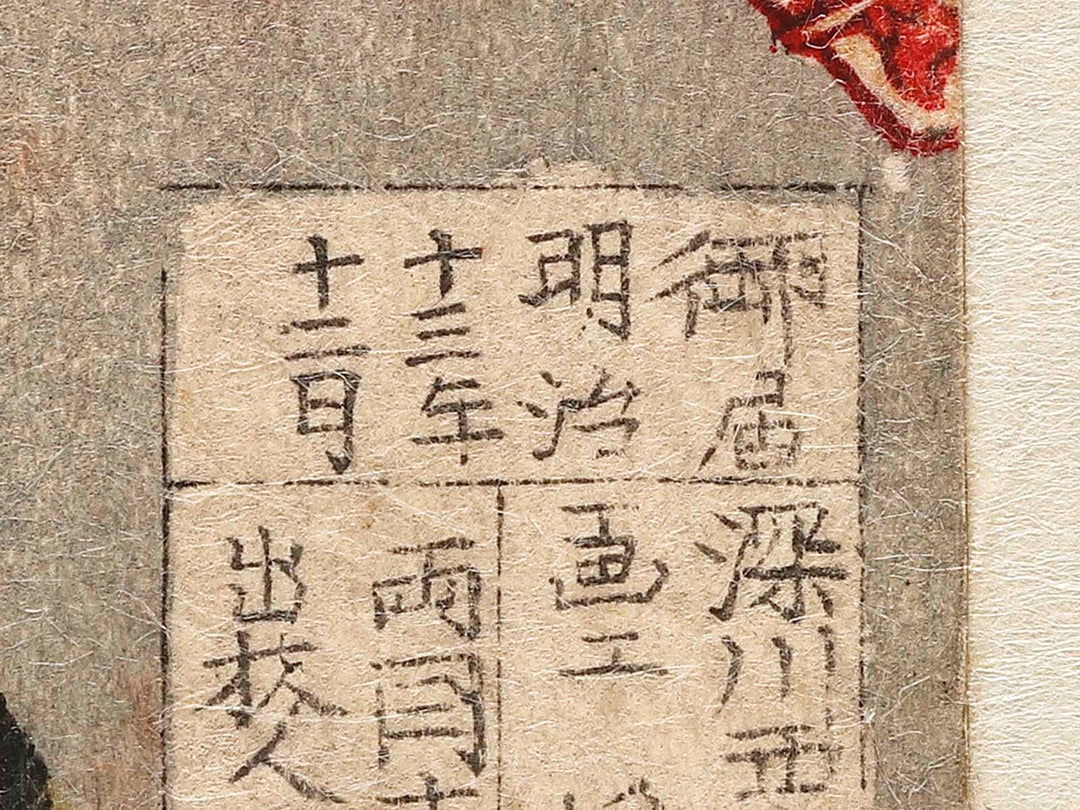 御届
明治
十三年
十二月
深川西
画工
両国吉
出板人